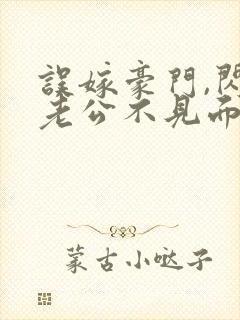 誤嫁豪門,閃
老公不見而
蒙古小噠子